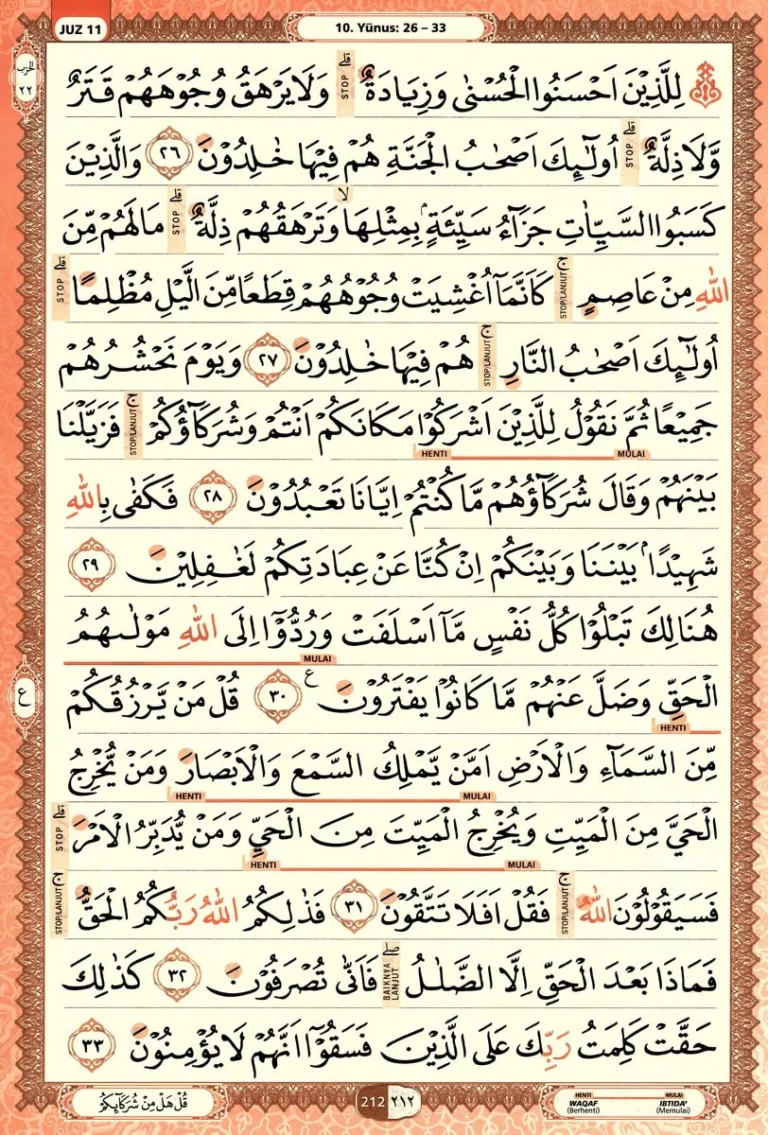 JUZ 11
10. Yūnus: 26 – 33
الحزب ٢٢
لِلَّذِيْنَ اَحْسَنُوا الْحُسْنٰى وَزِيَادَةٌ ۗ وَلَا يَرْهَقُ وُجُوْهَهُمْ قَتَرٌ
STOP
وَّلَا ذِلَّةٌ ۗ اُولٰۤىِٕكَ اَصْحٰبُ الْجَنَّةِ هُمْ فِيْهَا خٰلِدُوْنَ ٢٦ وَالَّذِيْنَ
STOP
كَسَبُوا السَّيِّاٰتِ جَزَاۤءُ سَيِّئَةٍ ۢبِمِثْلِهَاۙ وَتَرْهَقُهُمْ ذِلَّةٌ ۗ مَا لَهُمْ مِّنَ
STOP
اللّٰهِ مِنْ عَاصِمٍ ۚ كَاَنَّمَآ اُغْشِيَتْ وُجُوْهُهُمْ قِطَعًا مِّنَ الَّيْلِ مُظْلِمًا ۗ
STOP/LANJUT STOP
اُولٰۤىِٕكَ اَصْحٰبُ النَّارِ ۚ هُمْ فِيْهَا خٰلِدُوْنَ ٢٧ وَيَوْمَ نَحْشُرُهُمْ
STOP/LANJUT
جَمِيْعًا ثُمَّ نَقُوْلُ لِلَّذِيْنَ اَشْرَكُوْا مَكَانَكُمْ اَنْتُمْ وَشُرَكَاۤؤُكُمْ ۚ فَزَيَّلْنَا
STOP/LANJUT
MULAI HENTI
بَيْنَهُمْ وَقَالَ شُرَكَاۤؤُهُمْ مَّا كُنْتُمْ اِيَّانَا تَعْبُدُوْنَ ٢٨ فَكَفٰى بِاللّٰهِ
شَهِيْدًا ۢ بَيْنَنَا وَبَيْنَكُمْ اِنْ كُنَّا عَنْ عِبَادَتِكُمْ لَغٰفِلِيْنَ ٢٩
هُنَالِكَ تَبْلُوْا كُلُّ نَفْسٍ مَّآ اَسْلَفَتْ وَرُدُّوْٓا اِلَى اللّٰهِ مَوْلٰىهُمُ
MULAI
الْحَقِّ وَضَلَّ عَنْهُمْ مَّا كَانُوْا يَفْتَرُوْنَ ࣖ ٣٠ قُلْ مَنْ يَّرْزُقُكُمْ
ع
HENTI
مِّنَ السَّمَاۤءِ وَالْاَرْضِ اَمَّنْ يَّمْلِكُ السَّمْعَ وَالْاَبْصَارَ وَمَنْ يُّخْرِجُ
MULAI HENTI
الْحَيَّ مِنَ الْمَيِّتِ وَيُخْرِجُ الْمَيِّتَ مِنَ الْحَيِّ وَمَنْ يُّدَبِّرُ الْاَمْرَ ۗ
STOP
MULAI HENTI
فَسَيَقُوْلُوْنَ اللّٰهُ ۚ فَقُلْ اَفَلَا تَتَّقُوْنَ ٣١ فَذٰلِكُمُ اللّٰهُ رَبُّكُمُ الْحَقُّ ۚ
STOP/LANJUT STOP/LANJUT
فَمَاذَا بَعْدَ الْحَقِّ اِلَّا الضَّلٰلُ ۖ فَاَنّٰى تُصْرَفُوْنَ ٣٢ كَذٰلِكَ
BAIKNYA LANJUT
حَقَّتْ كَلِمَتُ رَبِّكَ عَلَى الَّذِيْنَ فَسَقُوْٓا اَنَّهُمْ لَا يُؤْمِنُوْنَ ٣٣
قُلْ هَلْ مِنْ شُرَكَاۤىِٕكُمْ
212 ٢١٢
HENTI MULAI
WAQAF IBTIDA'
(Berhenti) (Memulai)